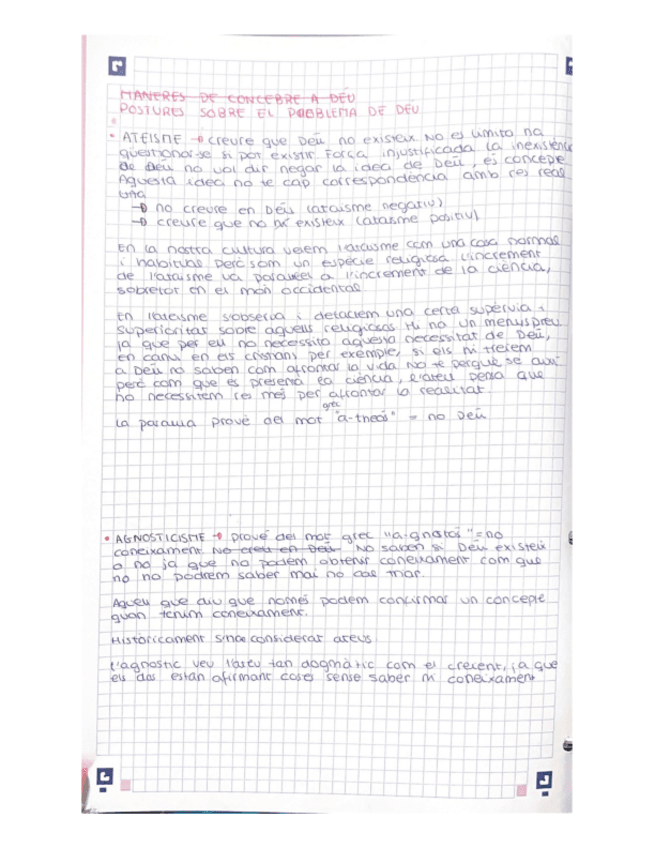 MANERES DE CONCEBRE A DÉU
POSTURES SOBRE EL PROBLEMA DE DEU
• ATEISME → creure que Deū no existeix. No es limita na
qüestionar-se si pot existir. Força injustificada. La inexistència
de Déu no vol dir negar la idea de Deū, es concepte
Aquesta idea no te cap correspondencia amb res real
una
→ no creure en Déu (ateisme negatiu)
→ creure que no existeix (ateisme positiu)
En la nostra cultura veiem l'ateisme com una cosa normal
i habitual però som un espècie religiosa. L'increment
de l'ateisme va paral·lel a l'increment de la ciència,
sobretot en el món occidental
En l'ateisme s'observa i detectem una certa supèrvia i
superioritat sobre aquells religiosos. Hi ha un menyspreu
ja que per ell no necessito aquesta necessitat de Deū,
en canvi en els cristians per exemple, si els hi treiem
a Deū no saben com afrontar la vida. No te perquè se així
però com que es presenta la ciència, l'ateu pensa que
no necessitem res més per afrontar la realitat
grec
La paraula prové del mot "a-theós" = no Deū
• AGNOSTICISME → prové del mot grec "a-gnostós" = no
coneixament. No creu en Deū. No saben si Deū existeix
o no ja que no podem obtenir coneixament com que
no ho podrem saber mai no cal
Aquell que diu que només podem confirmar un concepte
quan tenim coneixament.
Històricament s'han considerat ateus.
L'agnostic veu l'ateu tan dogmàtic com el creient, ja que
els dos estan afirmant coses sense saber ni coneixament